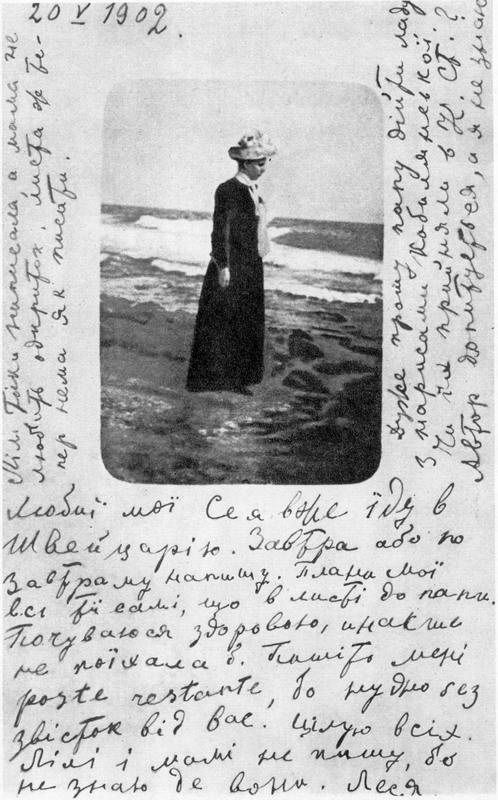 20 V 1902.
Любні мої Се я вже їду в
Швейцарію. Завтра або по
завтраму напишу. Плани мої
всі ті самі, що в листі до папи.
Почуваюся здоровою, инакше
не поїхала б. Пишіть мені
poste restante, бо нудно без
звісток від вас. Цілую всіх.
Лілі і мамі не пишу, бо
не знаю де вони. Леся
Лілі написала а мама не
любить одкриток, листа ж те-
пер нема як писати.
Дуже прошу папу дійти ладу
з нарисами Кобилянської.
Чи їх прийняло в К. Ст.?
Автор допитується, а я не знаю